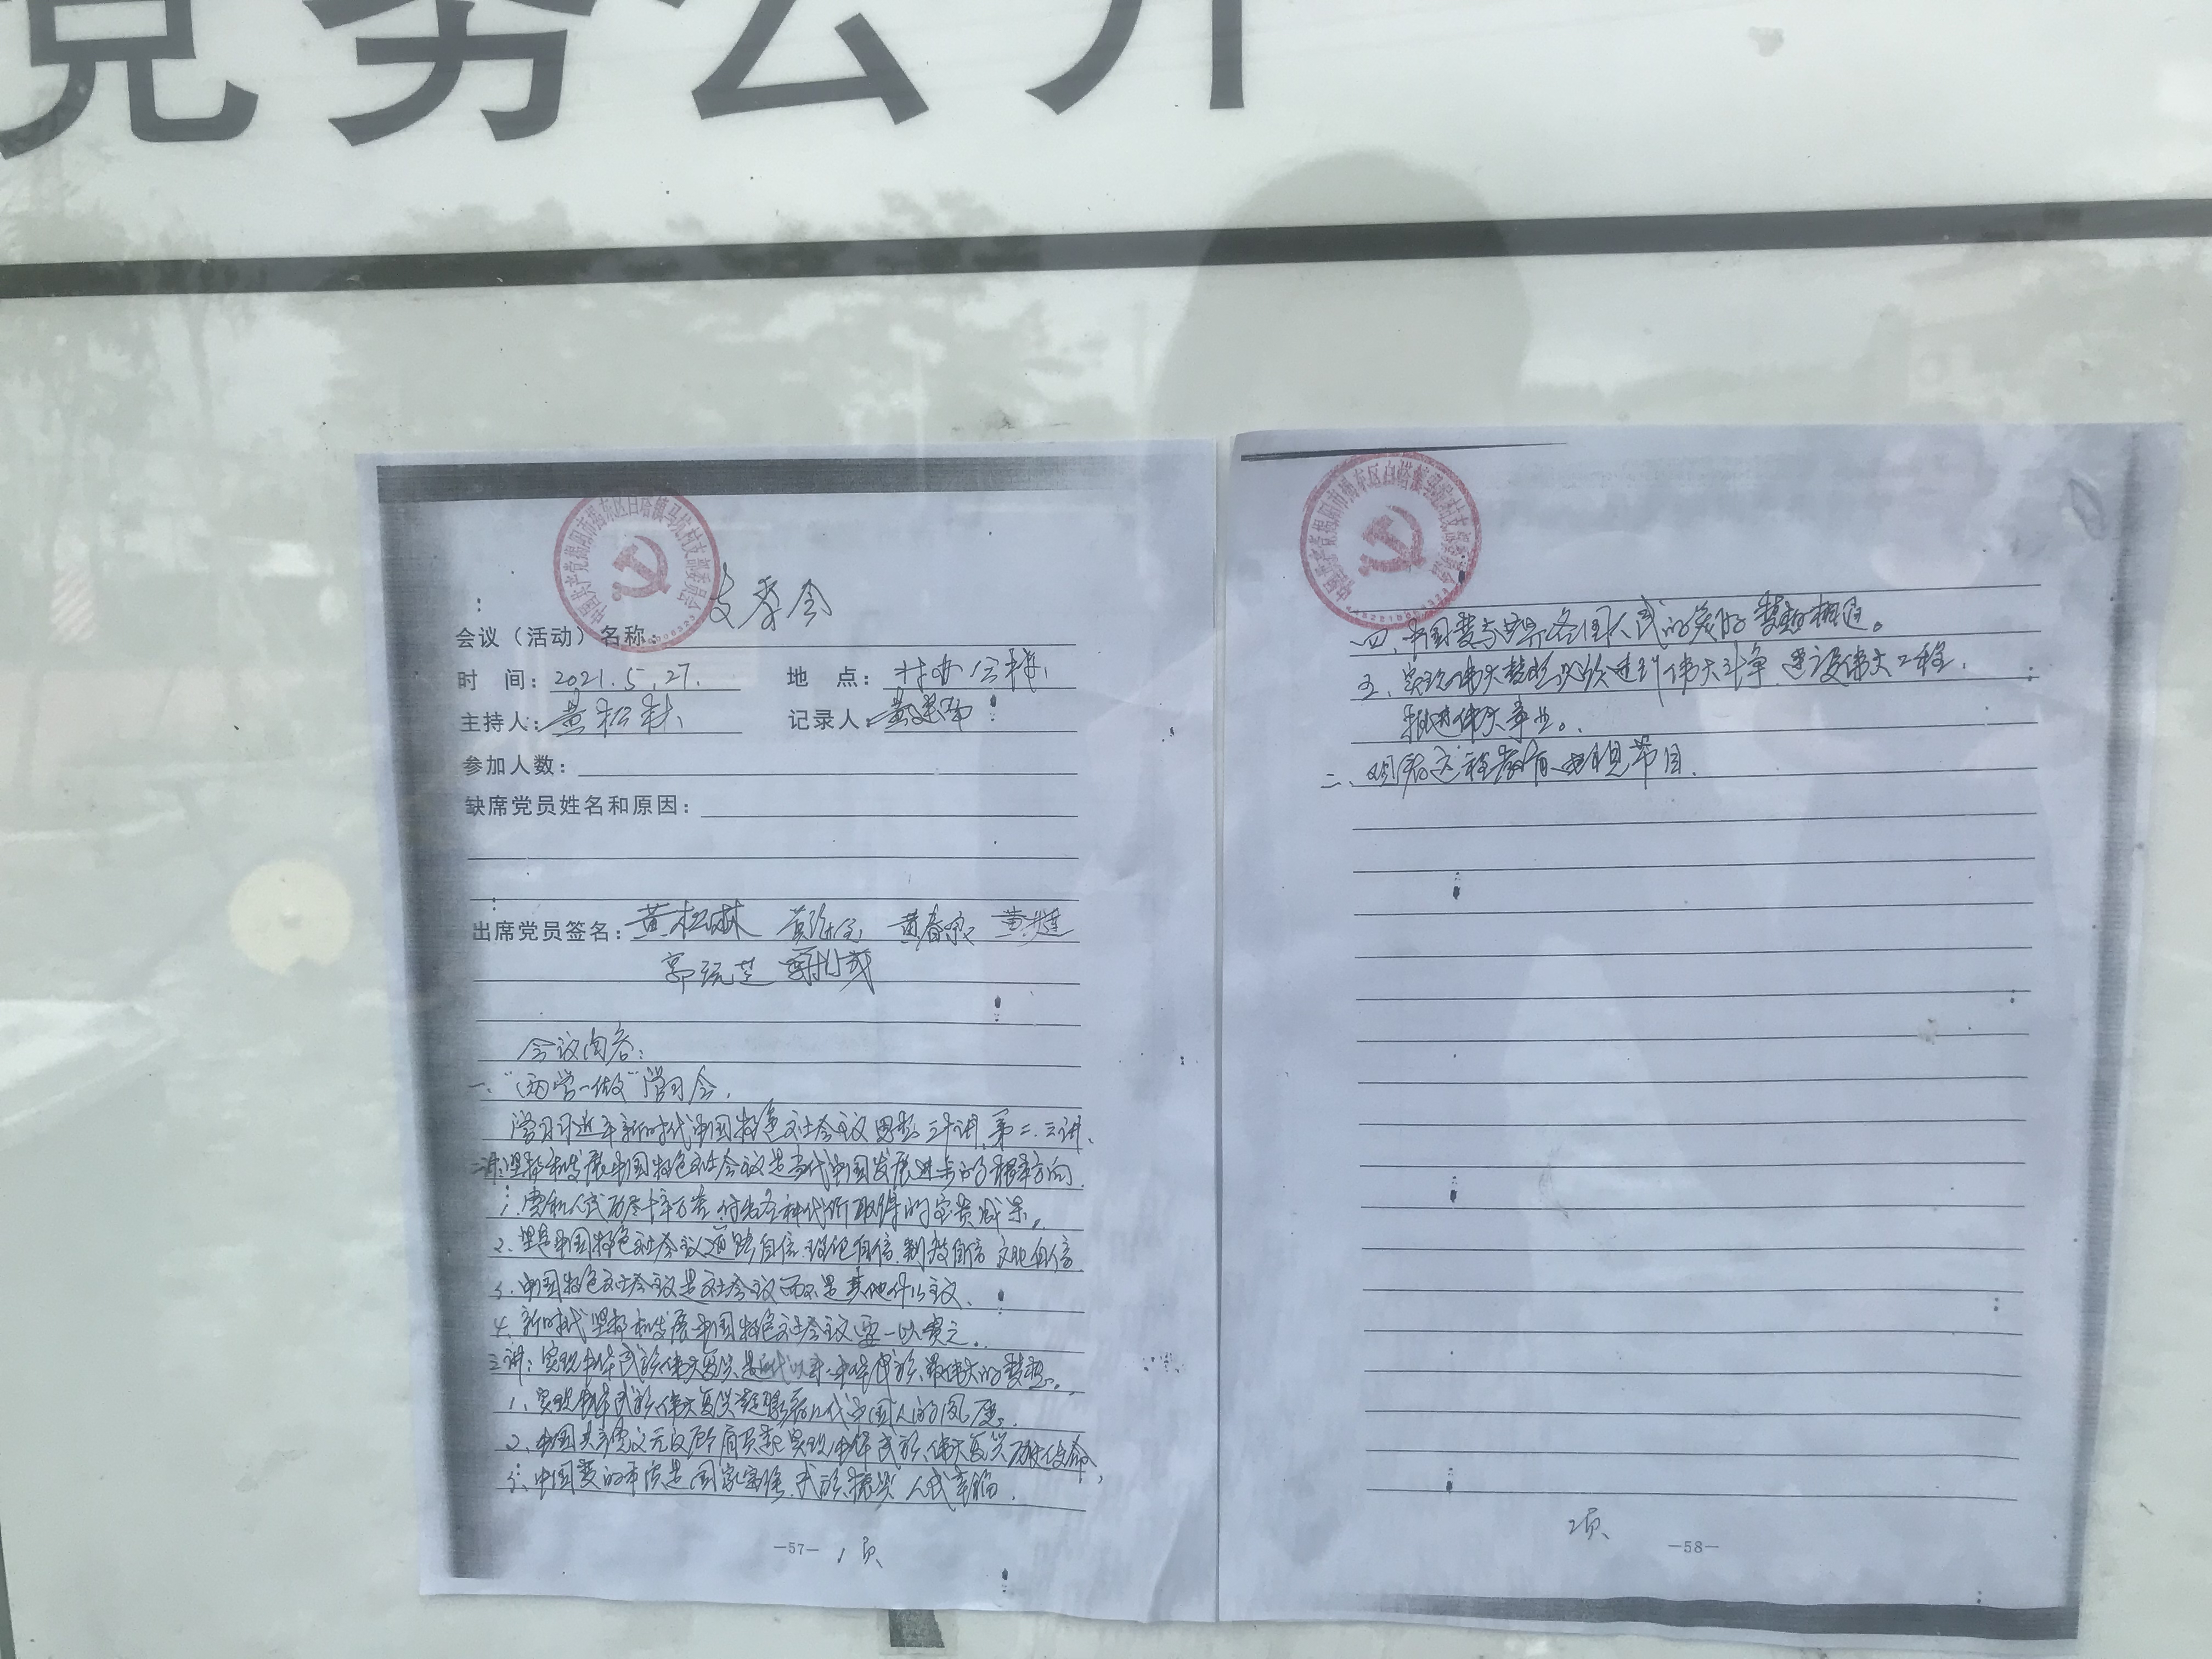 党务公开
支委会
会议（活动）名称：
时 间：2021.5.27. 地 点：村办公楼
主持人： 记录人：
参加人数：
缺席党员姓名和原因：
出席党员签名：
会议内容：
一、“两学一做”学习会.
学习习近平新时代中国特色社会主义思想三十讲,第二.三讲.
二讲:坚持和发展中国特色社会主义是当代中国发展进步的根本方向.
1.党和人民历尽千辛万苦,付出各种代价取得的宝贵成果。
2、坚定中国特色社会主义道路自信.理论自信.制度自信 文化自信
3.中国特色社会主义是社会主义而不是其他什么主义.
4.新时代坚持和发展中国特色社会主义要一以贯之.
三讲:实现中华民族伟大复兴是近代以来中华民族最伟大的梦想.
1、实现中华民族伟大复兴凝聚着几代中国人的夙愿.
2、中国共产党义无反顾肩负起实现中华民族伟大复兴历史使命,
3、中国梦的本质是国家富强.民族振兴 人民幸福.
—57— 1页
四.中国梦与世界各国人民的美好梦想相通。
五.实现伟大梦想必须进行伟大斗争.建设伟大工程.
推进伟大事业。
二、观看远程教育电视节目.
2页
—58—